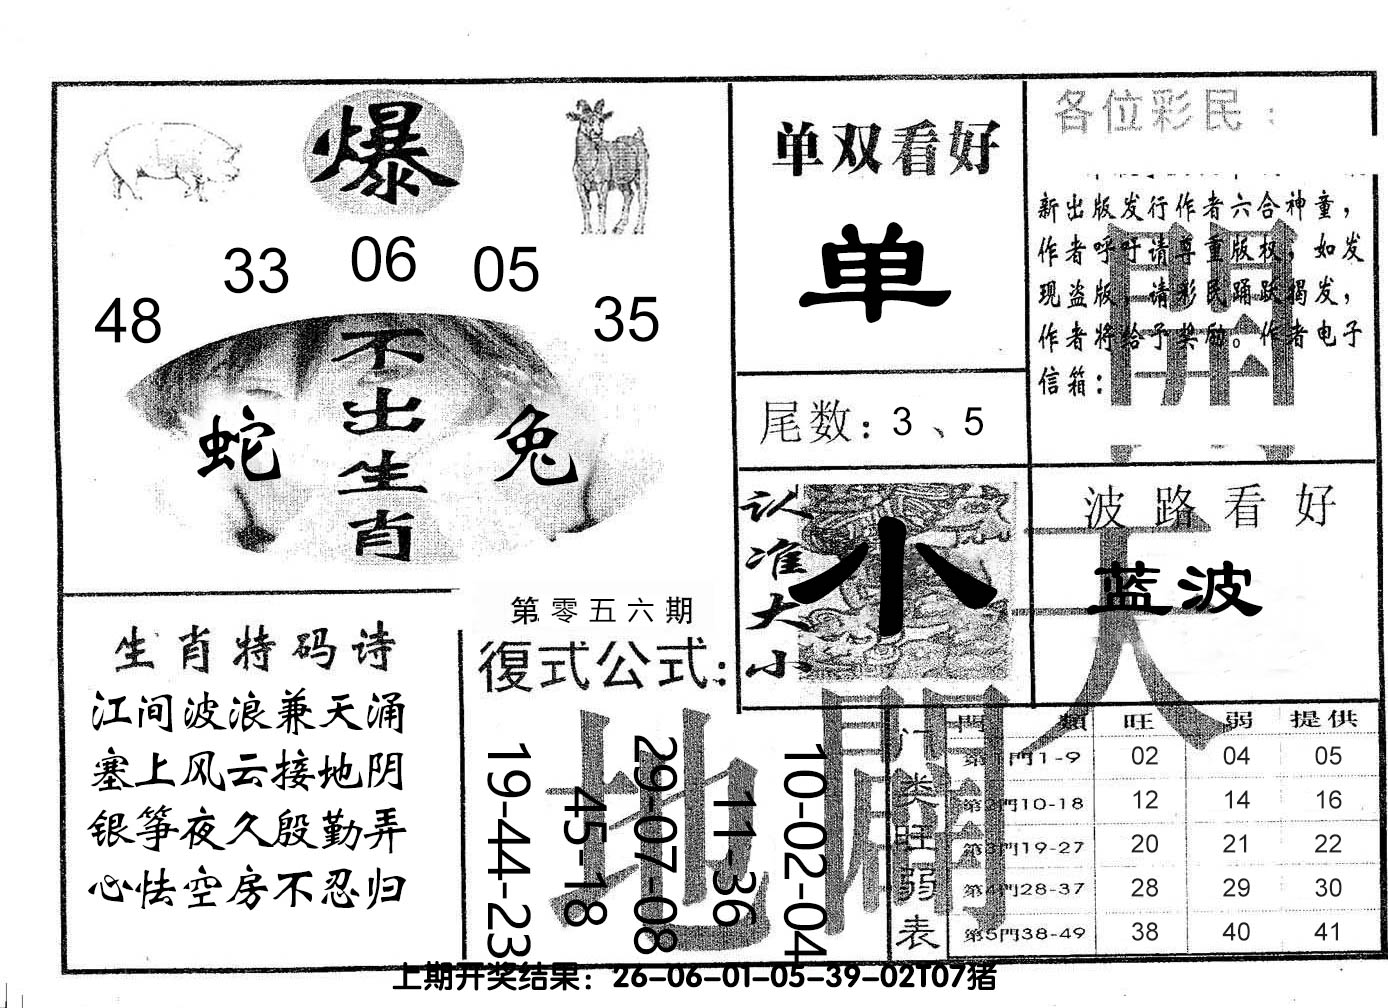 爆
48 33 06 05 35
不出生肖
蛇
兔
单双看好
单
尾数：3、5
认准大小
小
各位彩民：
新出版发行作者六合神童，
作者呼吁请尊重版权，如发
现盗版，请彩民踊跃揭发，
作者将给予奖励。作者电子
信箱：
波路看好
蓝波
天
地
開
開
生肖特码诗
江间波浪兼天涌
塞上风云接地阴
银筝夜久殷勤弄
心怯空房不忍归
第零五六期
復式公式：
19-44-23
45-18
29-07-08
11-36
10-02-04
门类旺弱表
門類 旺 弱 提供
第1門1-9 02 04 05
第2門10-18 12 14 16
第3門19-27 20 21 22
第4門28-37 28 29 30
第5門38-49 38 40 41
上期开奖结果：26-06-01-05-39-02T07猪